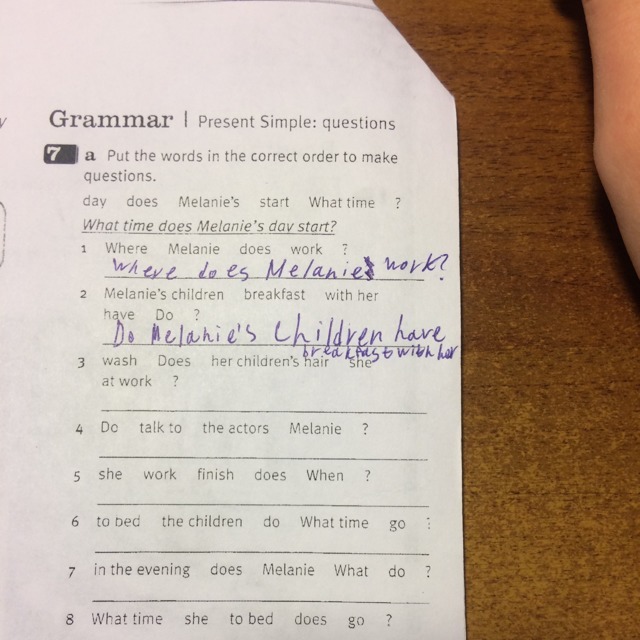 y
Grammar | Present Simple: questions
7 a Put the words in the correct order to make
questions.
day does Melanie's start What time ?
What time does Melanie's day start?
1 Where Melanie does work ?
Where does Melanie work?
2 Melanie's children breakfast with her
have Do ?
Do Melanie's children have
breakfast with her
3 wash Does her children's hair she
at work ?
4 Do talk to the actors Melanie ?
5 she work finish does When ?
6 to bed the children do What time go :
7 in the evening does Melanie What do ?
8 What time she to bed does go ?